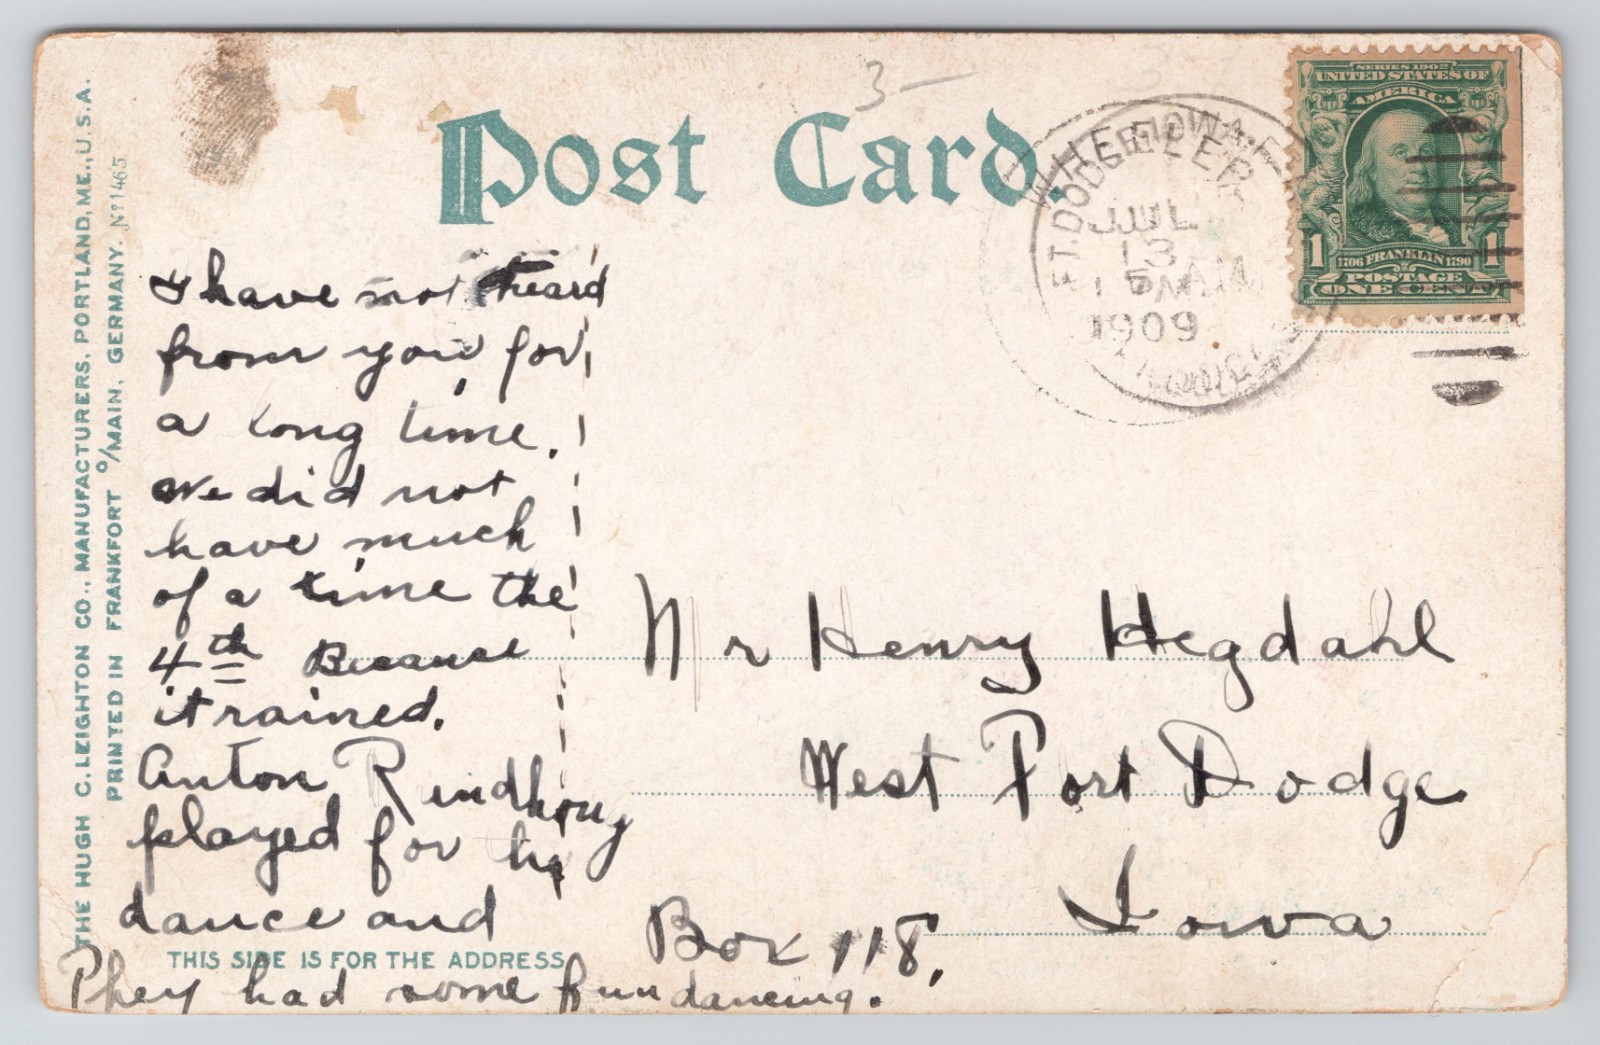 3-
Post Card.
SERIES 1902
UNITED STATES OF
AMERICA
1 1
1706 FRANKLIN 1790
POSTAGE
ONE CENT
FT. DODGE
IOWA
JUL
13
1909
THE HUGH C. LEIGHTON CO., MANUFACTURERS, PORTLAND, ME., U.S.A.
PRINTED IN FRANKFORT o/MAIN, GERMANY. No 1465
I have not heard
from you for
a long time.
We did not
have much
of a time the
4th Because
it rained.
Anton
played for
dance and
They had some fun dancing.
THIS SIDE IS FOR THE ADDRESS
Mr Henry Hegdahl
West Fort Dodge
Iowa
Box 118.